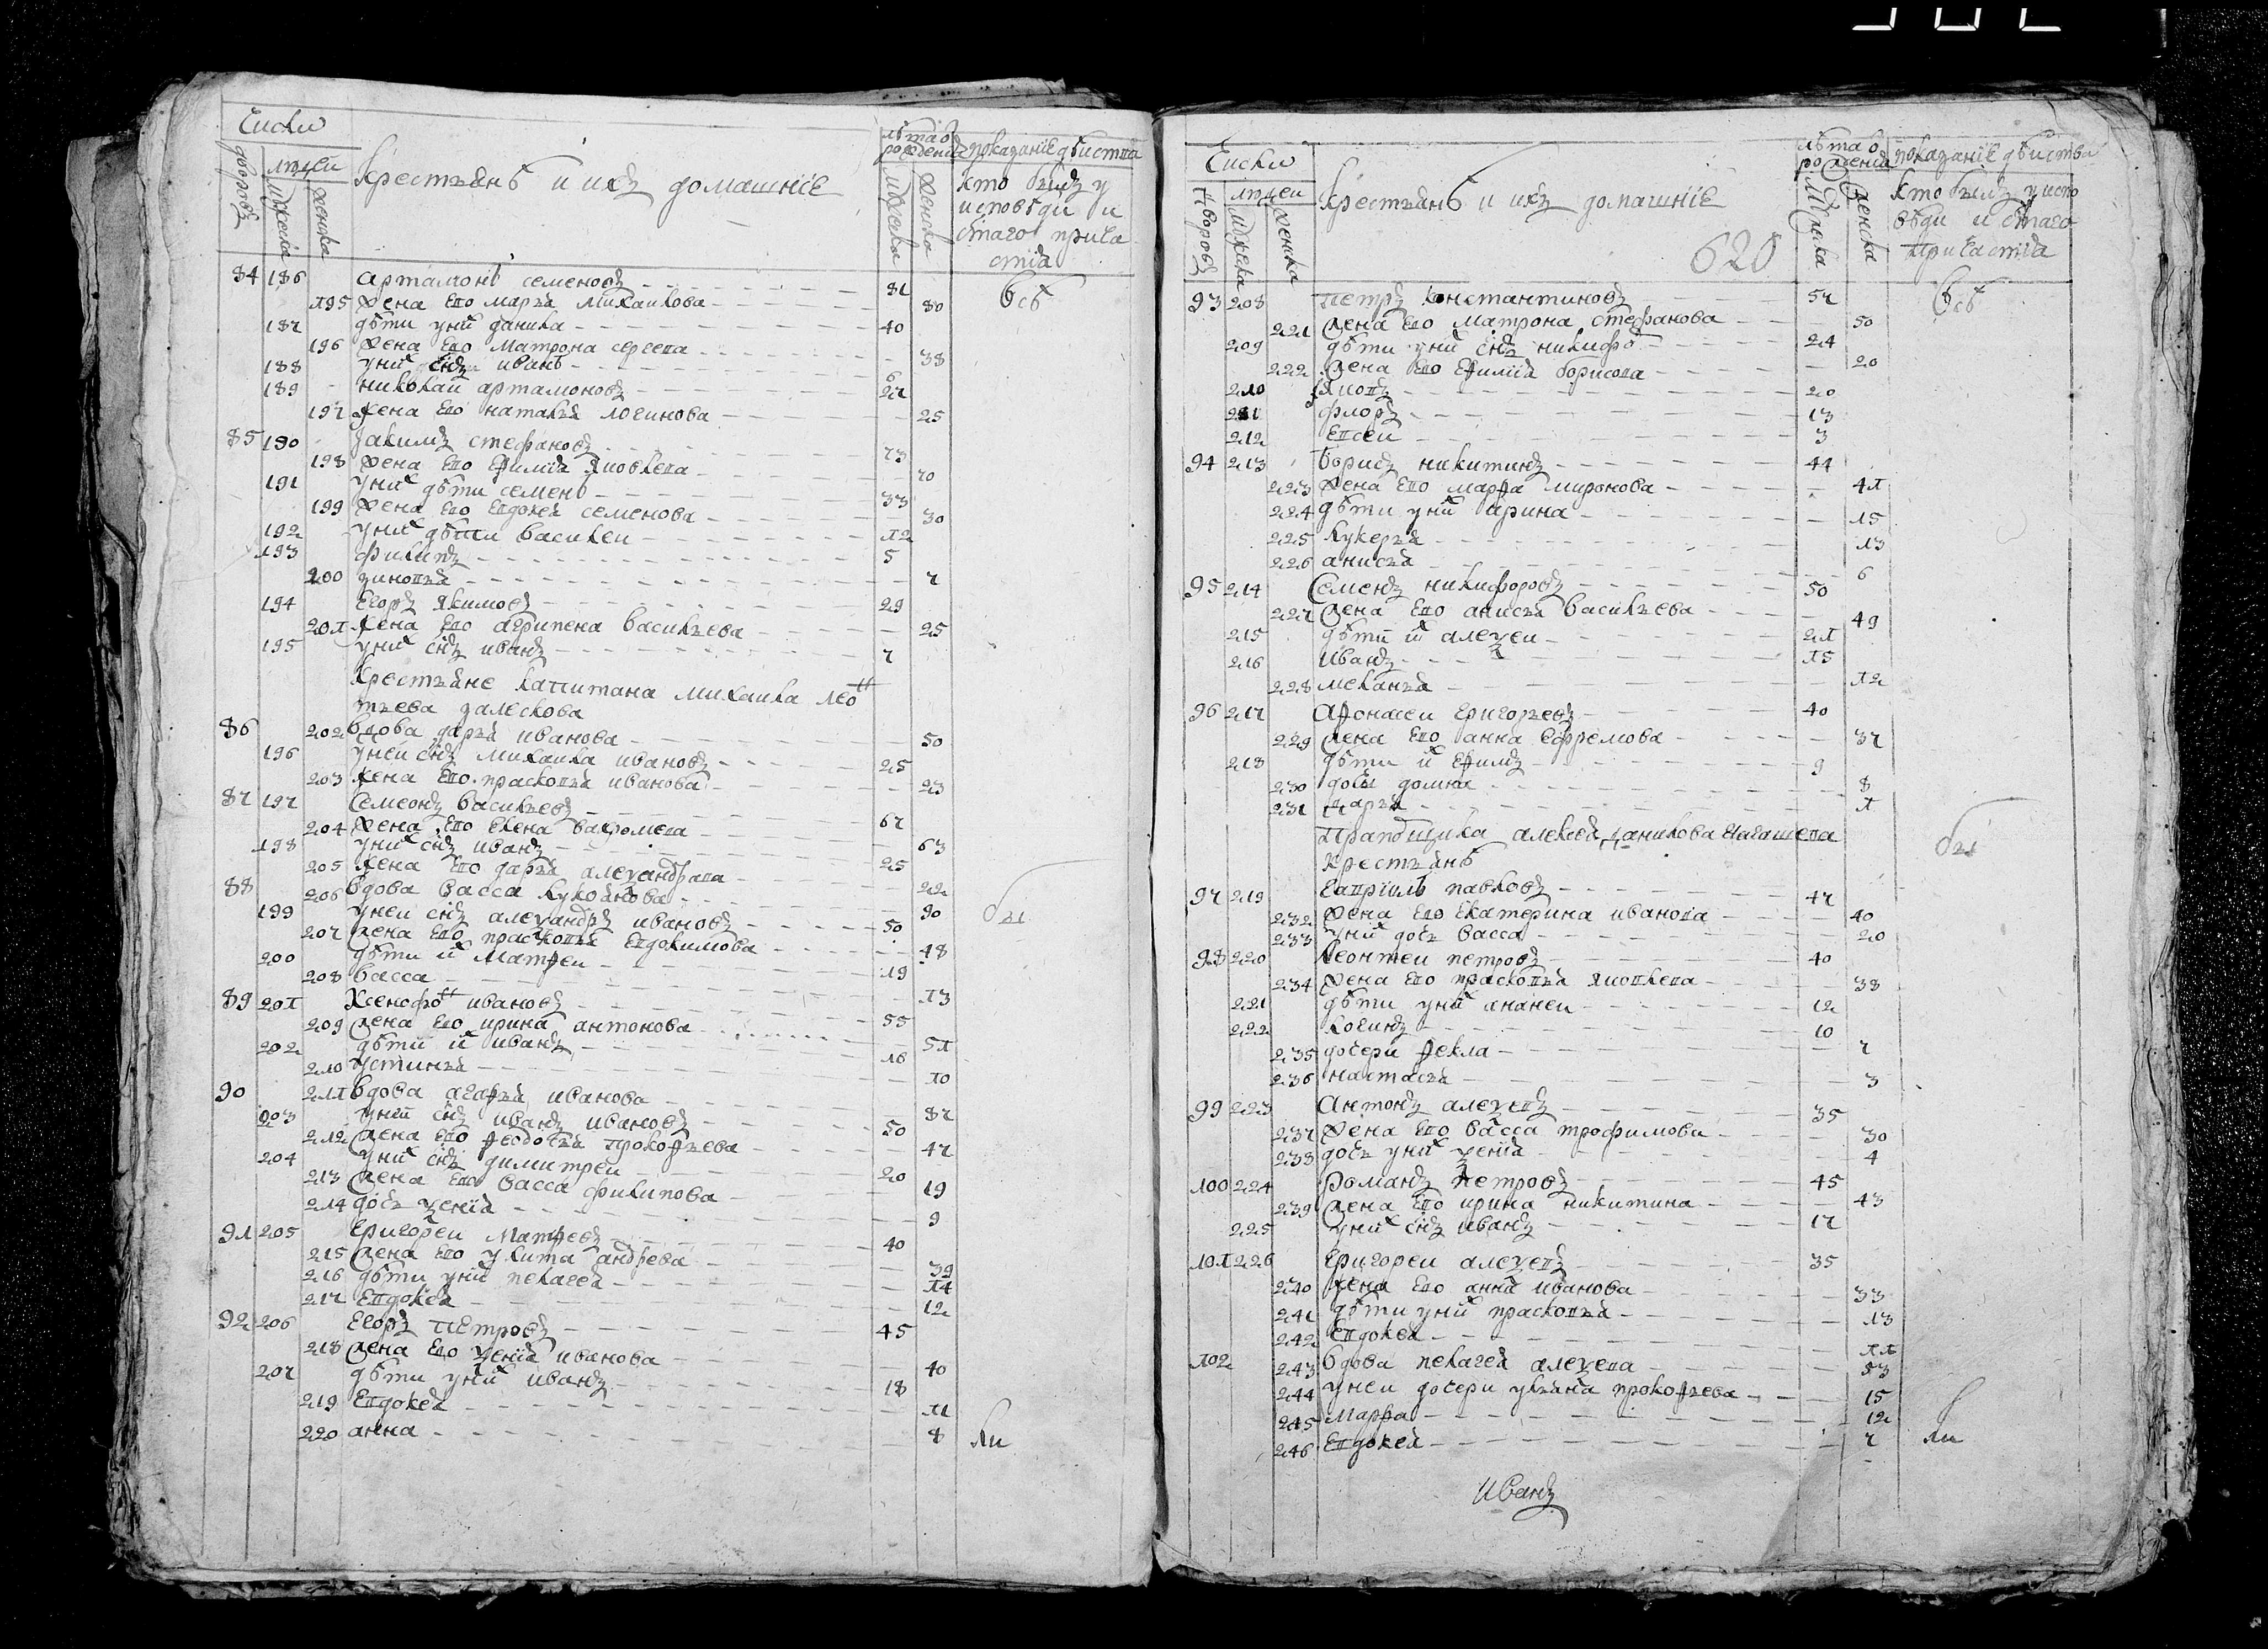 Числи
дворовъ
людеи
мужеска
женска
крестьянъ и ихъ домашнiе
лѣта от рождения
мужеска
женска
показанiе дѣиства
кто былъ у
исповѣди и
стаго прича
стiя
84 186 артамонъ семеновъ 81
195 жена ево марья михаилова 80
всѣ
187 дѣти у нихъ данила 40
196 жена ево матрона сергеева 38
188 у них снъ иванъ 6
189 николаи артамоновъ 27
197 жена ево наталья логинова 25
85 190 Iакимъ стефановъ 73
198 жена ево ефимiя яковлева 70
191 у них дѣти семенъ 33
199 жена ево евдокея семенова 30
192 у них дѣти василеи 12
193 филипъ 5
200 зиновья 7
194 Егоръ якимовъ 29
201 жена ево агрипена васильева 25
195 у них снъ иванъ 7
крестьяне капитана михаила лео н
тьева
86 202 вдова дарья иванова 50
196 у неи снъ михаила ивановъ 25
203 жена ево прасковья иванова 23
87 197 Семеонъ васильевъ 67
204 жена ево елена 63
198 у них снъ иванъ 25
205 жена ево дарья 22
88 206 вдова васса лукоянова 90
199 у неи снъ алеѯандръ ивановъ 50
207 жена ево прасковья евдокимова 48
бы
200 дѣти их матѳеи 19
208 васса 13
89 201 Ксенофон ивановъ 55
209 жена ево ирина антонова 51
202 дѣти их иванъ 16
210 устинья 10
90 211 вдова агаѳья иванова 87
203 у неи снъ иванъ ивановъ 50
212 жена ево ѳедосья прокоѳьева 47
204 у них снъ димитреи 20
213 жена ево васса филипова 19
214 дочь ѯенiя 9
91 205 Григореи матѳевъ 40
215 жена ево улита андрева 39
216 дѣти у них пелагея 14
217 Евдокея 12
92 206 Егоръ петровъ 45
218 жена ево ѯенiя иванова 40
207 дѣти у них иванъ 18
219 Евдокея 11
220 анна 8
ли
Числи
дворовъ
людеи
мужеска
женска
крестьянъ и ихъ домашнiе
620
лѣта от рожденiя
мужска
женска
показанiе дѣиства
кто былъ у испо
вѣди и стаго
причастiя
93 208 петръ константиновъ 57
всѣ
221 жена ево матрона стефанова 50
209 дѣти у них снъ никифо 24
222 жена ево ефимiя борисова 20
210 Яковъ 20
211 флоръ 13
212 Евсеи 3
94 213 борисъ никитинъ 44
223 жена ево марѳа миронова 41
224 дѣти у них арина 15
225 лукерья 13
226 анисья 6
95 214 Семенъ никифоровъ 50
227 жена ево анисья васильева 49
215 дѣти их алеѯеи 21
216 иванъ 15
228 меланья 12
96 217 Аѳонасеи григорьевъ 40
229 жена ево анна ефремова 37
218 дѣти их ефимъ 9
230 дочь домна 8
231 дарья 1
прапорщика алексея данилова
крестьянъ
бы
97 219 Гаврiилъ павловъ 47
232 жена ево екатерина иванова 40
233 у них дочь васса 20
98 220 леонтеи петровъ 40
234 жена ево прасковья яковлева 38
221 дѣти у них ананеи 12
222 логинъ 10
235 дочери ѳекла 7
236 настасья 3
99 223 Антонъ алеѯевъ 35
237 жена ево васса трофимова 30
238 дочь у них ѯенiя 4
100 224 романъ петровъ 45
239 жена ево ирина никитина 43
225 у них снъ иванъ 17
101 226 Григореи алеѯевъ 35
240 жена ево анна иванова 33
241 дѣти у них прасковья 13
242 Евдокея 11
102 243 вдова пелагея алеѯева 53
244 у неи дочери ульяна прокоѳьева 15
245 марѳа 12
246 Евдокея 7
ли
Иванъ